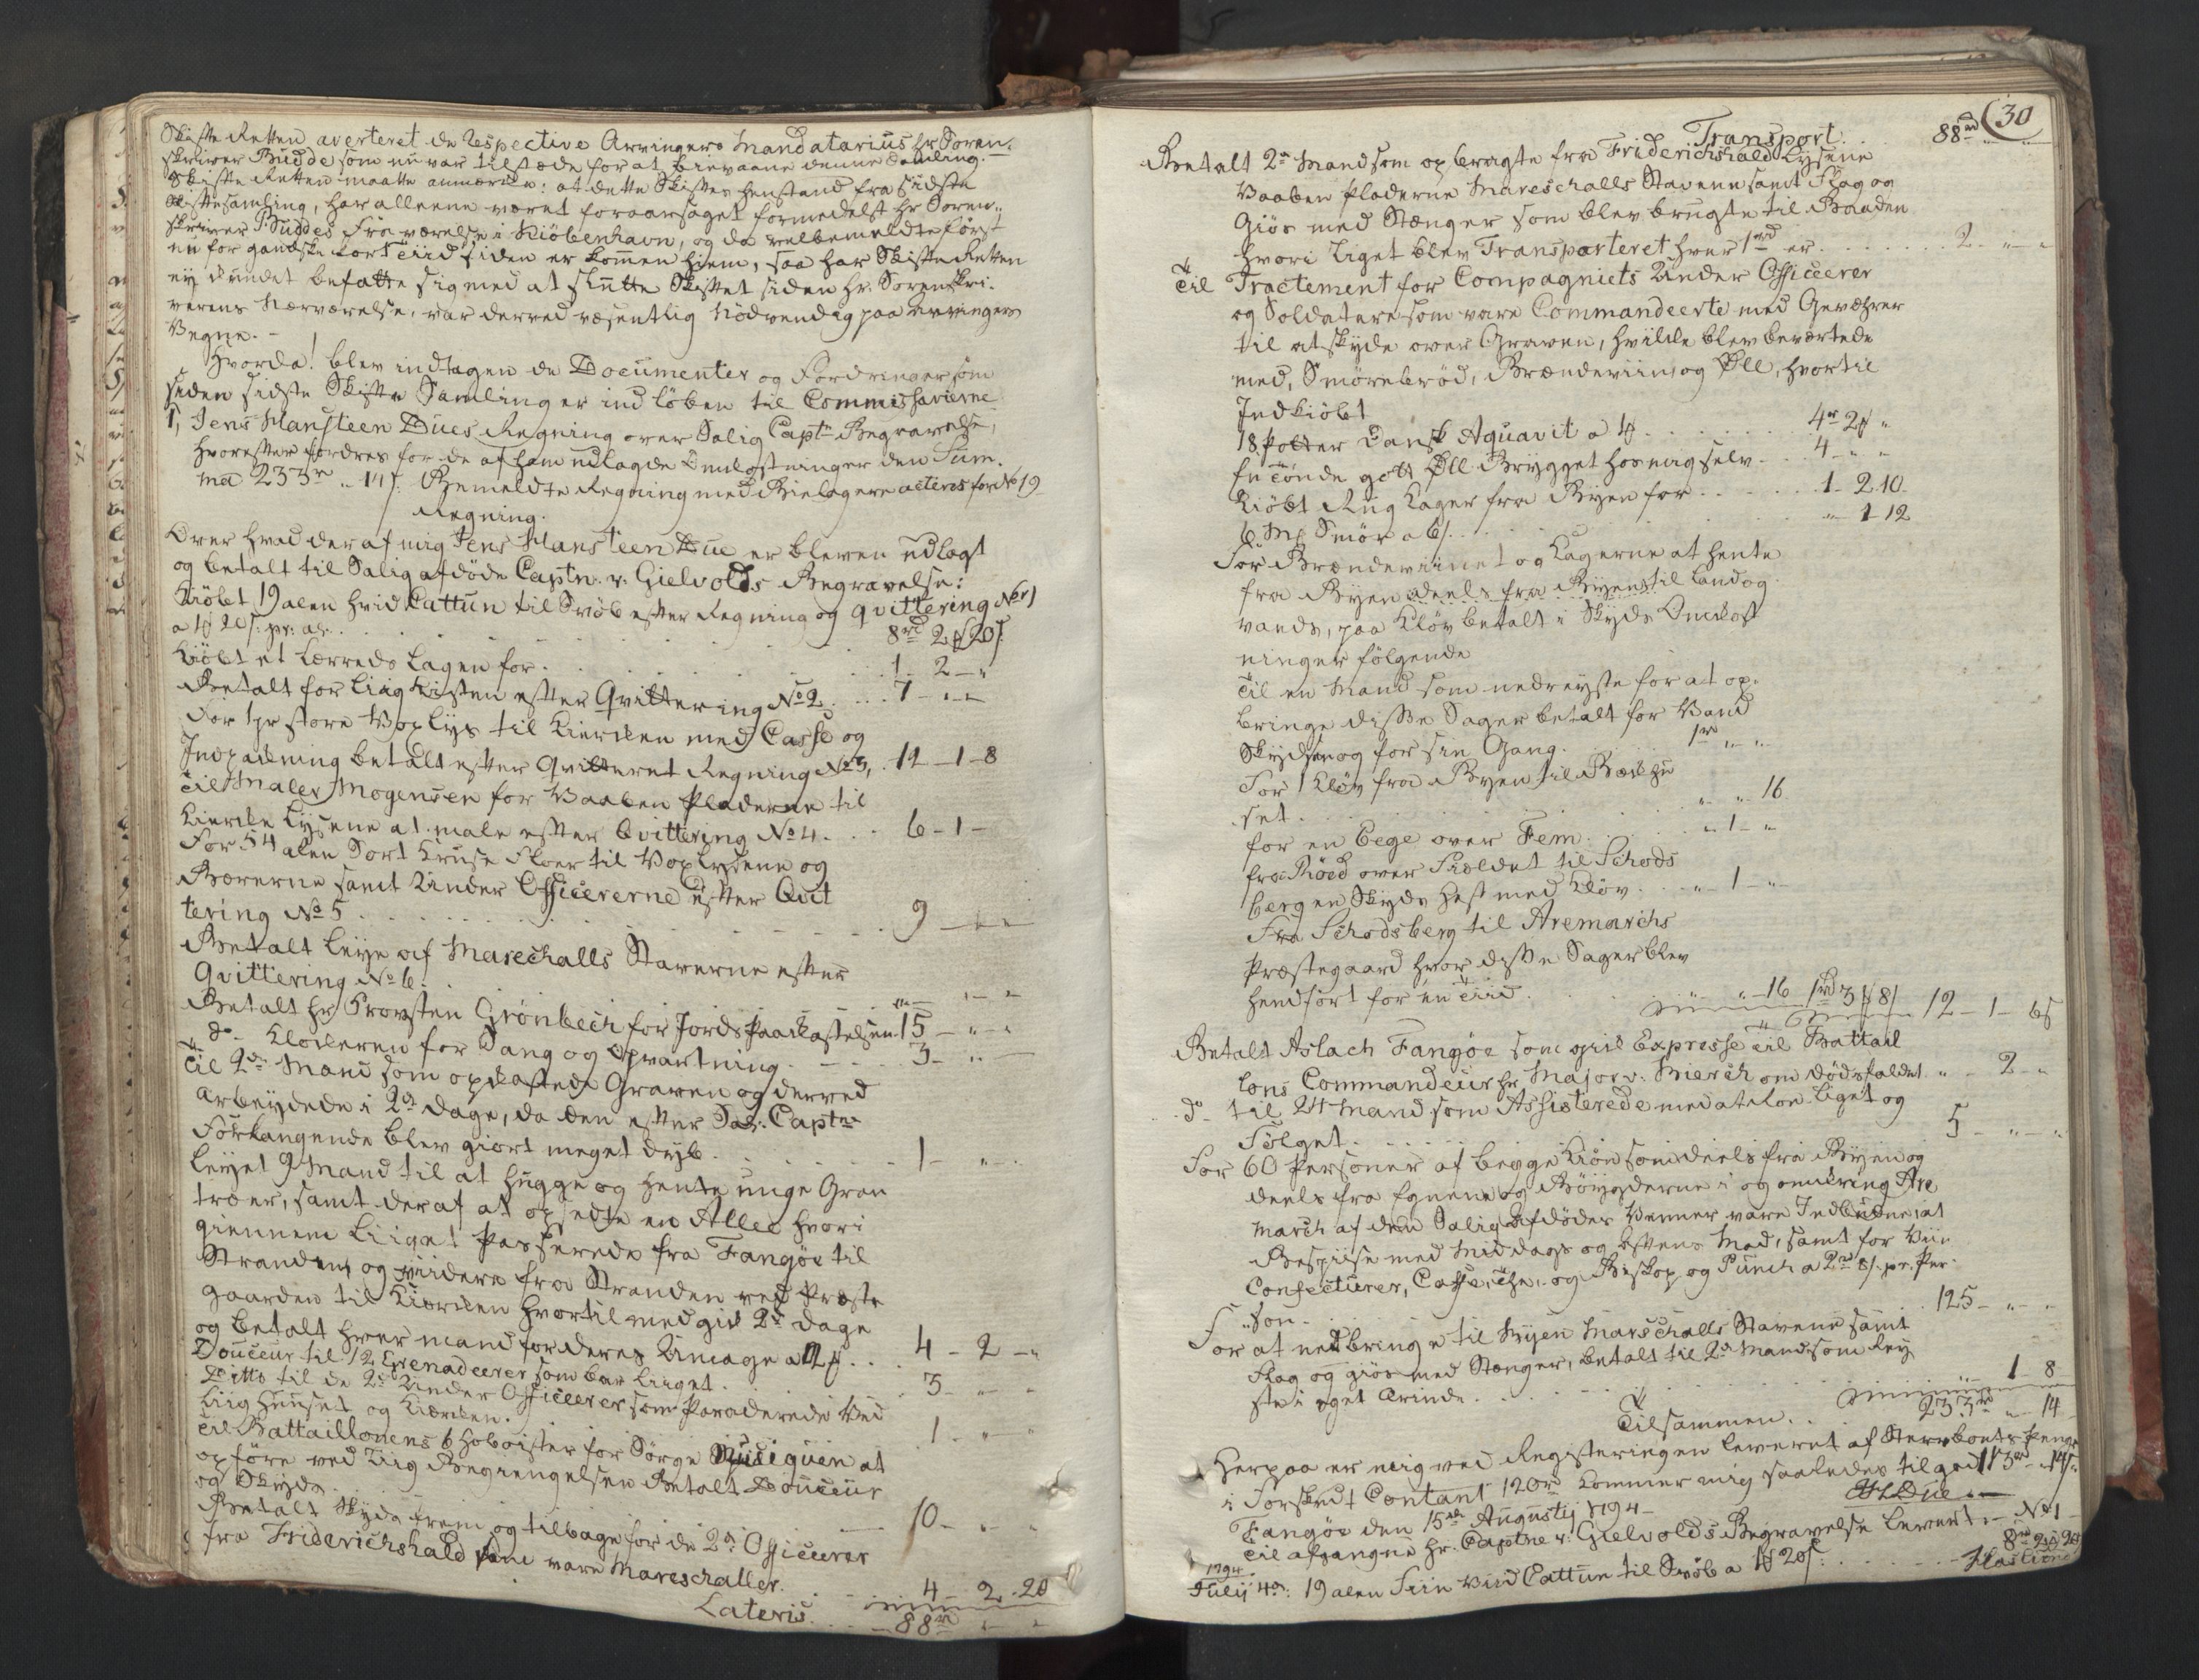 Skifte Retten averteret de Respective Arvingers Mandatarius hr Soren-
skriver Budde som nu var tilstæde for at bievaane denne Samling. -
Skifte Retten maatte anmærke: at dette Skiftes henstand fra sidste
Skiftesamling, har alleene været foraarsaget formedelst hr Soren-
skriver Buddes Fra værelse i Kiöbenhavn, og da velbemeldte först
en for gandske kort Tiid siden er kommen hiem, saa har Skifte Retten
ey kundet befatte sig med at slutte Skiftet siden hr. Sorenskri-
verens Nærværelse, var derved væsentlig Nödvendig paa Arvingers
Vegne. -
Hvorda! blev indtagen de Documenter og Fordringer som
siden sidste Skifte Samling er indlöben til Commissarierne
1, Jens Hansteen Dues Regning over Salig Captn Begravelse,
hvorefter fordres for de af ham udlagde Omkostninger den Sum-
ma 233rd „ 14s. Bemeldte Regning med Bielagene acteres for No 19
Regning.
Over hvad der af mig Jens Hansteen Due er bleven udlagt
og betalt til Salig afdöde Captn. v. Gielvolds Begravelse:
Kiöbt 19 alen hvid Cattun til Svöb efter Regning og qvittering No 1
a 1# 20s. pr: al. . . 8rd 2# 20s
Kiöbt et Lærreds Lagen for . . . 1. 2 - „
Betalt for Liig Kisten efter Qvittering No 2 . . . 7 - „ - „
For 1 pr store Vox Lys til Kierken med Casse og
Indpakning betalt efter qvitteret Regning No 3, . 12 - 1 - 8
Til Maler Mogensen for Vaaben Pladerne til
Kierke Lysene at male efter Qvittering No 4. . . 6 - 1 -
For 54 alen Sort Kruse Floer til Vox Lysene og
Bærerne samt Under Officererne efter Qvit
tering No 5 . . . 9 - „ - „
Betalt Leye af Mareschalls Staverne efter
Qvittering No 6. . . „ - „
Betalt hr Provsten Grönbech for Jords Paakastelsen 15 - „ - „
do Klokeren for Sang og Opvartning . . . 3 - „ -
Til 2de Mand som opkastede Graven og derved
Arbeydede i 2de dage, da den efter Sal. Captns
Forlangende blev giort meget dyb . . . 1 - „ -
Leyet 9 Mand til at hugge og hente unge Gran
træer, samt deraf at opsette en Allee hvori
giennem Liiget Passerede fra Fangöe til
Stranden, og viidere fra Stranden ved Præste
gaarden til Kierken hvortil medgik 2de dage
og betalt hver mand for deres Umage a 2# . . 4 - 2 - „
Douceur til 12 Grenadeerer som bar Liiget . . . 3 - „ - „
Ditto til de 2de Under Officeerer som Paraderede ved
Liig Huuset og Kierken. . . 1 - „ - „
Til Battaillonens 6 Hoboister for Sörge Musiquen at
opföre ved Liig Begiengelsen Betalt Douceur
og Skyds . . . 10 - „ - „
Betalt Skyds frem og tilbage for de 2de Officeerer
fra Friderichshald som vare Mareschaller. . 4 - 2 - 20
Lateris. . . 88rd „ - „
30
Transport . . 88rd „ - „
Betalt 2de Mand som opbragte fra Friderichshald Lysene
Vaaben Pladerne Mareschalls Stavene samt Flag og
Giös med Stænger som blev brugte til Baaden
hvori Liget blev Transporteret hver 1rd er . . . 2 - „ - „
Til Tractement for Compagniets Under Officeerer
og Soldatere som vare Commandeerte med Gevæhrer
til at skyde over Graven, hvilke blev bevertede
med, Smörrebröd, Brændeviin, og Öll, hvortil
Indkiöbt
18 Potter Dansk Aquavit a 1# . . . 4rd 2# „
En Tönde gott Öll Brygget hos mig selv . . 4 - „ - „
Kiöbt Rug Kager fra Byen for . . . 1 - 2. 10 -
6 Mk Smör a 6s. . . . „ 1 12
For Brændeviinet og Kagerne at hente
fra Byen deels fra Byen til Land og
vands, paa Klöv betalt i Skyds Omkost
ninger fölgende
Til en Mand som nedreyste for at op-
bringe disse Sager betalt for Vand
Skydsen og for sin Gang . . . 1rd „ - „
For 1 Klöv fra Byen til Bakhu
set . . . „ - „ 16
for en Eege over Fem . . . „ 1 - „
fra Röed over Skoldet til Schods
berg en Skyds hest med Klöv . . „ - 1 - „
Fra Schodsberg til Aremarchs
Præstegaard hvor disse Sager blev
hendfört for en Tiid . . . „ - „ - 16 1rd 3# 8s 12 - 1 - 6s
Betalt Aslach Fangöe som gik Expresse til Battail
lons Commandeur hr Major v. Bierch om dödsfaldet „ - 2 - „
do til 24 Mand som Assisterede med at roe Liget og
Fölget . . . 5 - „ - „
For 60 Personer af begge Kiön som deels fra Byen og
deels fra Egnen og Böygderne i og omkring Are
march af den Salig Afdödes Venner vare Indbudne, at
Bespiise med Middags og Aftens Mad, samt for Viin
Confecturer, Caffe, The, og Biskop og Punch a 2rd 8s. pr. Per-
son . . . 125 - „ - „
For at nedbringe til Byen Marschalls Stavene samt
Flag og giös med Stænger, betalt til 2de Mand som rey
ste i eget Ærinde . . . „ - 1 - 8
Tilsammen . . 233rd „ - 14
Herpaa er mig ved Registeringen leveret af Sterboets Penge
i Forskudt Contant 120rd kommer mig saaledes tilgode 113rd „ 14s
Fangöe den 15de Augustij 1794 - JHDue. -
Til afgangne hr. Captne v. Gielvolds Begravelse Levert. - No 1
1794.
Julij 4de: 19 alen Fiin Viid Cattun til Svöb a 1# 20s: . . . 8rd 2# 20